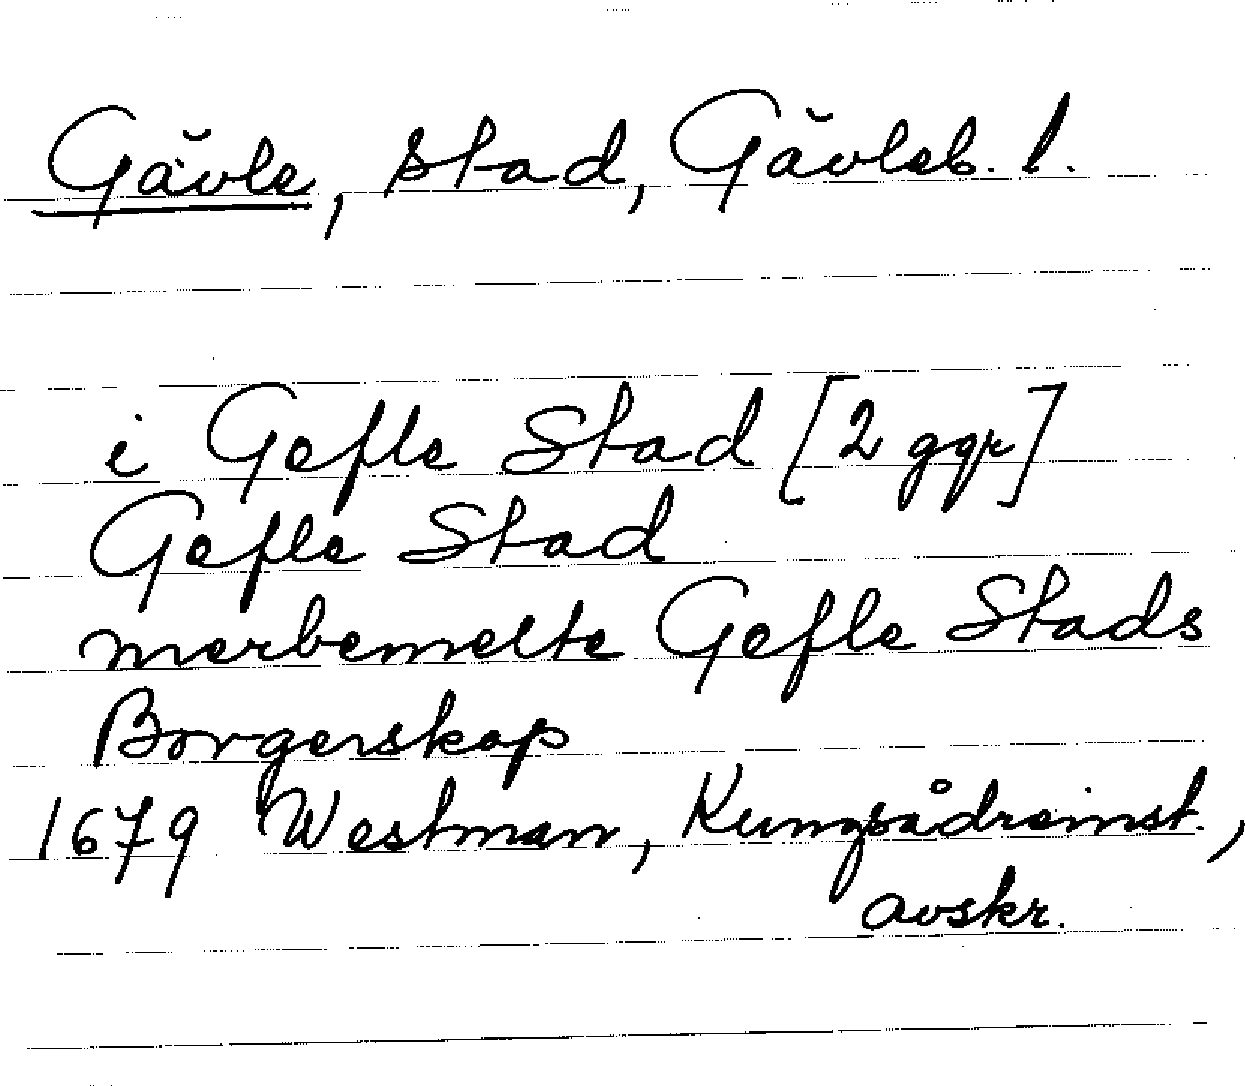 Gävle, stad, Gävleb. l.
i Gefle Stad [2 ggr]
Gefle Stad
merbemelte Gefle Stads
Borgerskap
1679 Westman, Kungsådreinst.,
avskr.